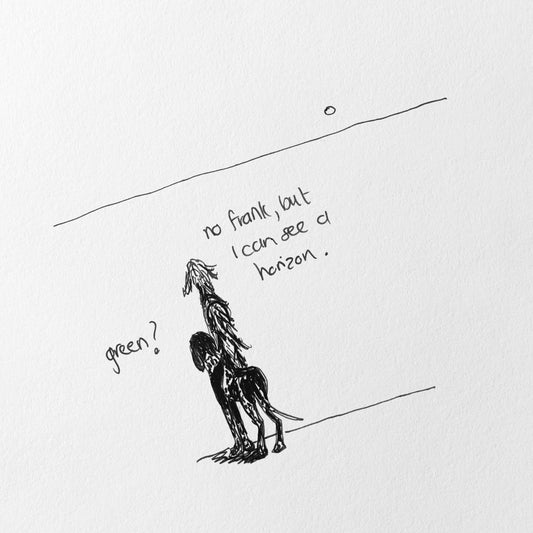 no frank, but
I can see a
horizon.
green?